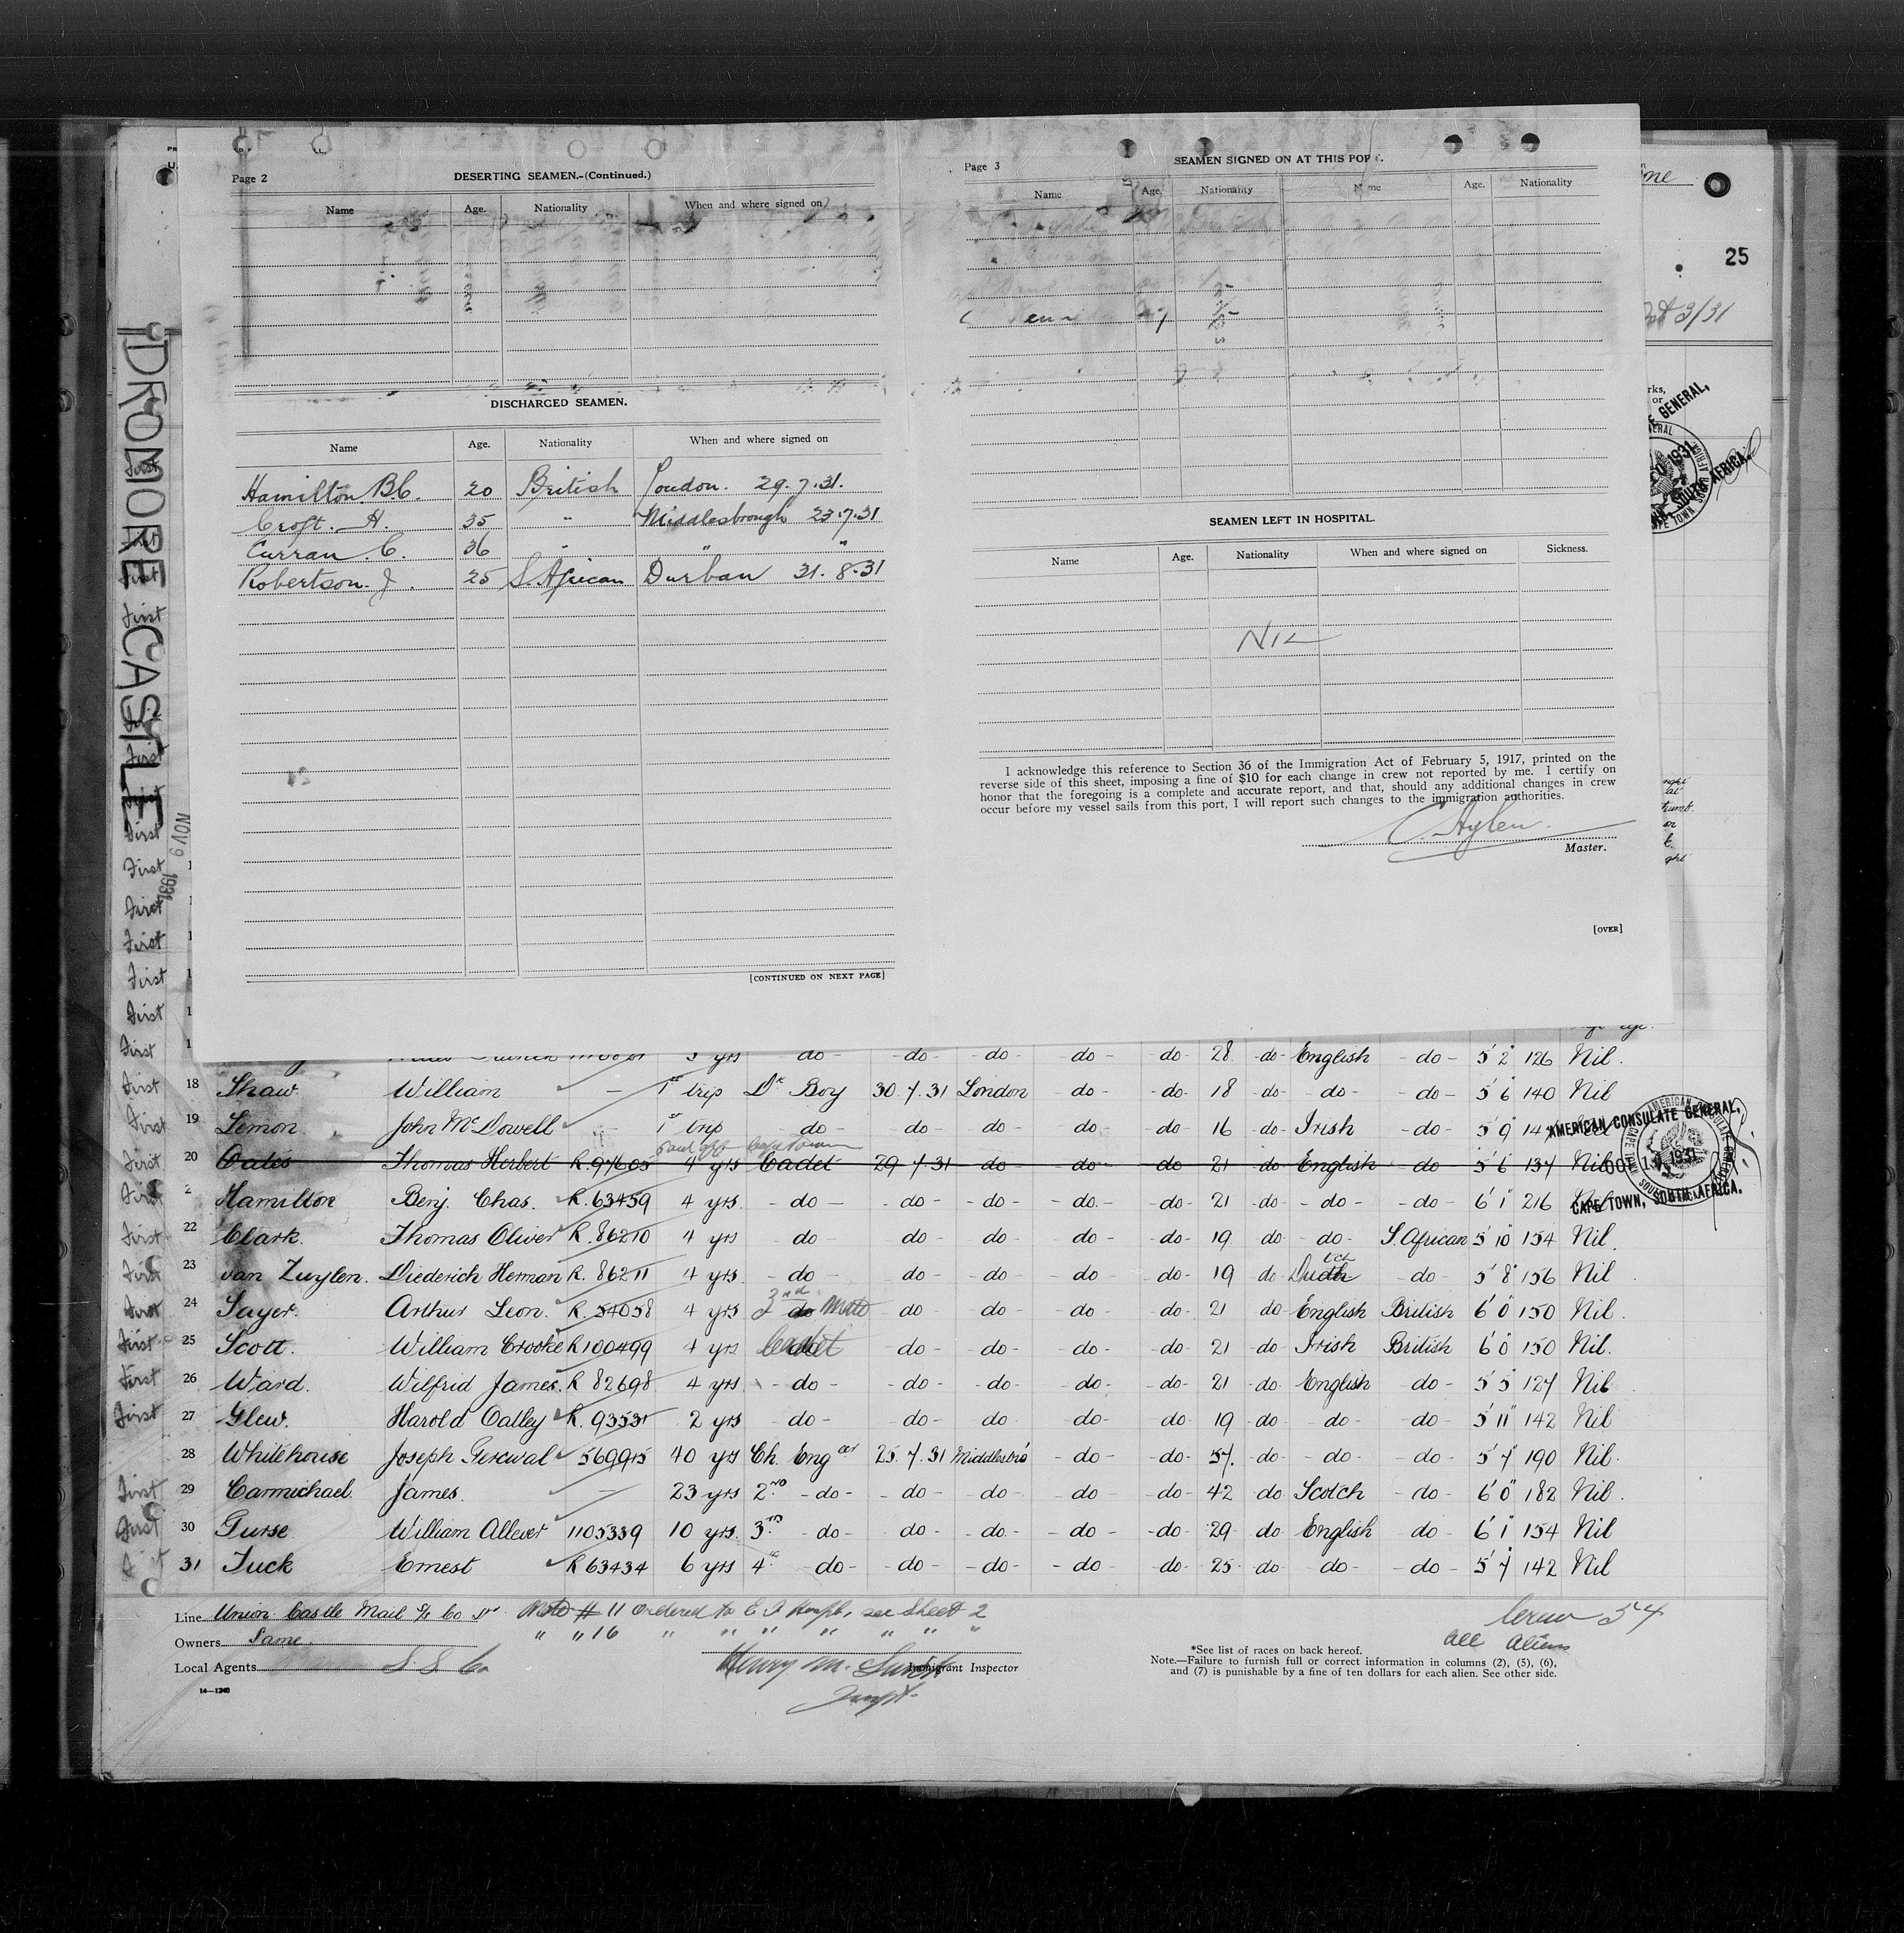 DROMORE CASTLE
NOV 9 1931
25
Page 2
DESERTING SEAMEN.-(Continued.)
Name Age. Nationality When and where signed on
DISCHARGED SEAMEN.
Name Age. Nationality When and where signed on
Hamilton B.C. 20 British London. 29.7.31.
Croft. H. 35 " Middlesbrough 23.7.31
Curran. C. 36 " " "
Robertson. J. 25 S. African Durban 31.8.31
[CONTINUED ON NEXT PAGE]
Page 3
SEAMEN SIGNED ON AT THIS PORT.
Name Age. Nationality Name Age. Nationality
SEAMEN LEFT IN HOSPITAL.
Name Age. Nationality When and where signed on Sickness.
NIL
I acknowledge this reference to Section 36 of the Immigration Act of February 5, 1917, printed on the
reverse side of this sheet, imposing a fine of $10 for each change in crew not reported by me. I certify on
honor that the foregoing is a complete and accurate report, and that, should any additional changes in crew
occur before my vessel sails from this port, I will report such changes to the immigration authorities.
Master.
[OVER]
3 yrs do - do - - do - - do - - do - 28 - do - English - do - 5' 2" 126 Nil.
First 18 Shaw William — 1st trip Dk Boy 30.7.31 London - do - - do - 18 - do - - do - - do - 5' 6" 140 Nil
First 19 Lemon John McDowell 1st trip - do - - do - - do - - do - - do - 16 - do - Irish - do - 5' 9"
Paid off Cape Town
First 20 Oates Thomas Herbert R.97605 4 yrs Cadet 29.7.31 - do - - do - - do - 21 - do - English - do - 5' 6" 137 Nil
AMERICAN CONSULATE GENERAL,
CAPE TOWN, SOUTH AFRICA.
First 2 Hamilton Benj. Chas. R.63459 4 yrs. - do - - do - - do - - do - - do - 21 - do - - do - - do - 6' 1" 216
First 22 Clark. Thomas Oliver R.86210 4 yrs - do - - do - - do - - do - - do - 19 - do - - do - S. African 5' 10" 154 Nil.
First 23 van Zuylen. Diederich Herman R.86211 4 yrs. - do - - do - - do - - do - - do - 19 - do Dutch - do - 5' 8" 156 Nil
First 24 Sayer. Arthur Leon. R.54058 4 yrs 3rd do Mate do - do - - do - - do - 21 do English British 6' 0" 150 Nil.
First 25 Scott. William Crooke R100499 4 yrs Cadet - do - - do - - do - - do - 21 do Irish British 6' 0" 150 Nil.
First 26 Ward. Wilfrid James. R 82698 4 yrs - do - - do - - do - - do - - do - 21 - do - English - do - 5' 5" 127 Nil
First 27 Glew. Harold Oatley R.93531 2 yrs - do - - do - - do - do - - do 19 - do - do - - do - 5' 11" 142 Nil
28 Whitehouse Joseph Percival 569915 40 yrs Ch. Enger 25.7.31 Middlesbro' - do - - do - 57. - do - - do - - do - 5' 7" 190 Nil.
First 29 Carmichael. James. — 23 yrs 2nd - do - - do - - do - - do - - do - 42 - do Scotch - do - 6' 0" 182 Nil.
First 30 Purse William 1105339 10 yrs. 3rd - do - - do - - do. - - do - - do - 29 - do English - do - 6' 1" 154 Nil
31 Tuck Ernest R 63434 6 yrs 4th - do - - do - - do - - do - - do - 25 - do - do - - do - 5' 7" 142 Nil
Line Union Castle Mail S/S Co Ld Note # 11 ordered to E. I Hosptl, see Sheet 2
" " 16 " " " " " " "
Crew 54
All Aliens
Owners Same.
Local Agents S. S. Co.
Henry M.
Immigrant Inspector
*See list of races on back hereof.
Note.—Failure to furnish full or correct information in columns (2), (5), (6),
and (7) is punishable by a fine of ten dollars for each alien. See other side.
14—1240